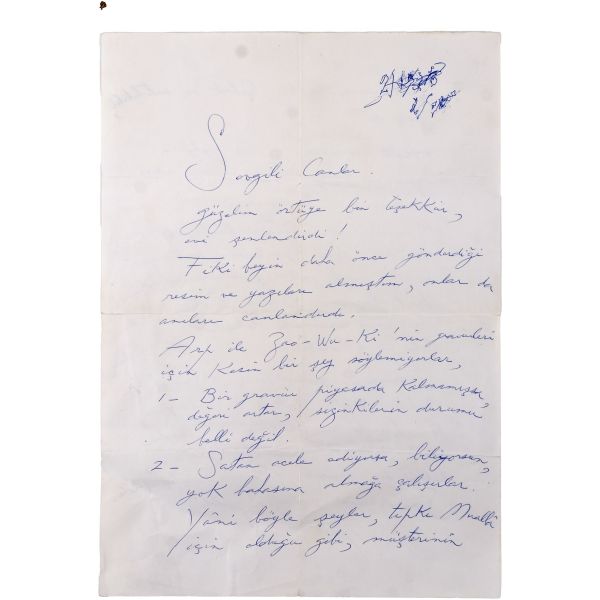 Sevgili Canlar.
güzelim örtüye bin teşekkür,
evi şenlendirdi!
Fikibeyin daha önce gönderdiği
resim ve yazıları almıştım, onlar da
anıları canlandırdı.
Arp ile Zao-Wu-Ki'nin gravürleri
için kesin bir şey söylemiyorlar,
1- Bir gravür piyasada kalmamışsa,
değeri artar, sizinkilerin durumu
belli değil.
2- Satan acele ediyorsa, biliyorsun,
yok bahasına almağa çalışırlar.
Yâni böyle şeyler, tıpkı Muallâ
için olduğu gibi, müşterinin